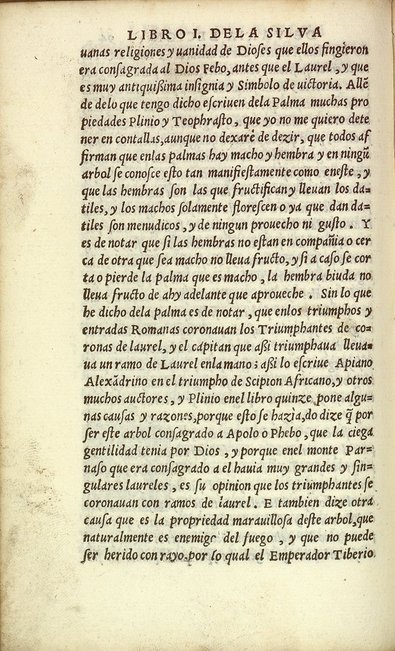 LIBRO I. DELA SILVA
uanas religiones y uanidad de Dioses que ellos fingieron
era consagrada al Dios Febo, antes que el Laurel, y que
es muy antiquißima insignia y Simbolo de uictoria. Allẽ
de delo que tengo dicho escriuen dela Palma muchas pro
piedades Plinio y Teophrasto, que yo no me quiero dete
ner en contallas, aunque no dexaré de dezir, que todos af
firman que enlas palmas hay macho y hembra y en ningũ
arbol se conosce esto tan manifiestamente como eneste, y
que las hembras son las que fructifican y lleuan los da-
tiles, y los machos solamente florescen o ya que dan da-
tiles son menudicos, y de ningun prouecho ni gusto. Y
es de notar que si las hembras no estan en compañia o cer
ca de otra que sea macho no lleua fructo, y si a caso se cor
ta o pierde la palma que es macho, la hembra biuda no
lleua fructo de ahy adelante que aproueche. Sin lo que
he dicho dela palma es de notar, que enlos triumphos y
entradas Romanas coronauan los Triumphantes de co-
ronas de laurel, y el capitan que aßi triumphaua lleua-
ua un ramo de Laurel enla mano: aßi lo escriue Apiano
Alexãdrino en el triumpho de Scipion Africano, y otros
muchos auctores, y Plinio enel libro quinze, pone algu-
nas causas y razones, porque esto se hazia, do dize q̃ por
ser este arbol consagrado a Apolo o Phebo, que la ciega
gentilidad tenia por Dios, y porque enel monte Par-
naso que era consagrado a el hauia muy grandes y sin-
gulares laureles, es su opinion que los triumphantes se
coronauan con ramos de laurel. E tambien dize otra
causa que es la propriedad marauillosa deste arbol, que
naturalmente es enemigo del fuego, y que no puede
ser herido con rayo, por lo qual el Emperador Tiberio